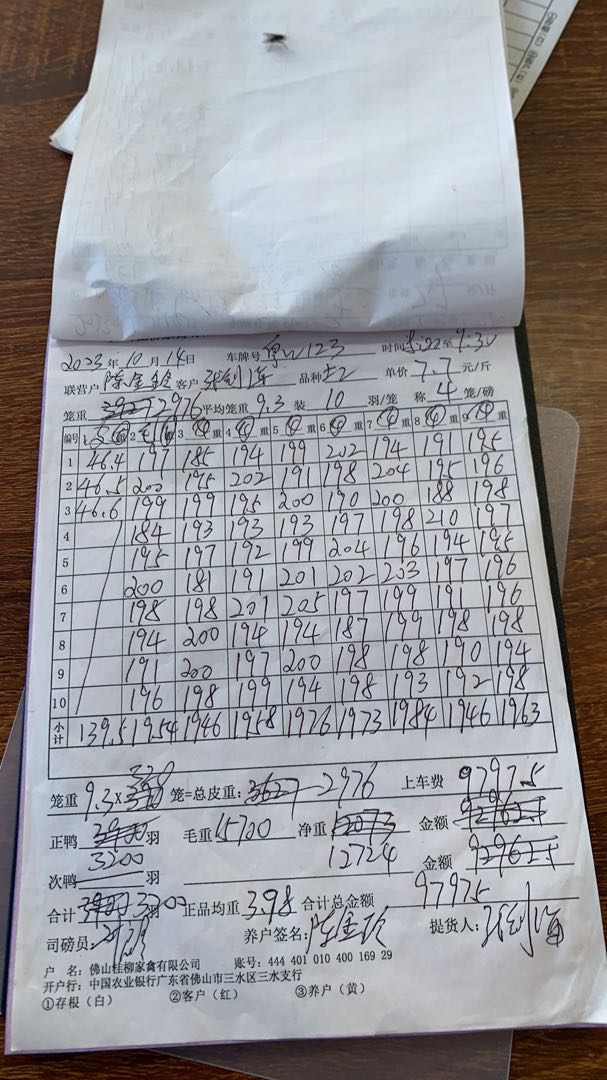 2023年10月14日 车牌号 123 时间 至9:30
联营户 陈金 客户 品种 单价 7.7 元/斤
笼重 2976 平均笼重 9.3 装 10 羽/笼 称 4 笼/磅
编号 重 2 重 3 ④重 4 ④重 5 ④重 6 ④重 7 ④重 8 ④重 9 ④重
1 46.4 197 185 194 199 202 194 191 195
2 46.5 200 195 202 191 198 204 195 196
3 46.6 199 199 195 200 190 200 188 198
4 184 193 193 193 197 198 210 197
5 195 197 192 199 204 196 194 195
6 200 181 191 201 202 203 197 196
7 198 198 201 205 197 199 191 196
8 194 200 194 194 187 199 198 198
9 191 200 197 200 198 198 190 194
10 196 198 199 194 198 193 192 198
小计 139.5 1954 1946 1958 1976 1973 1984 1946 1963
320
笼重 9.3× 笼=总皮重: 2976 上车费 97975
正鸭 羽 毛重 15700 净重 金额
3200 12724
次鸭 羽 金额
合计 3200 羽 正品均重 3.98 合计总金额 97975
司磅员: 养户签名: 陈金 提货人:
户 名: 佛山桂柳家禽有限公司 账号: 444 401 010 400 169 29
开户行: 中国农业银行广东省佛山市三水区三水支行
①存根(白) ②客户(红) ③养户(黄)